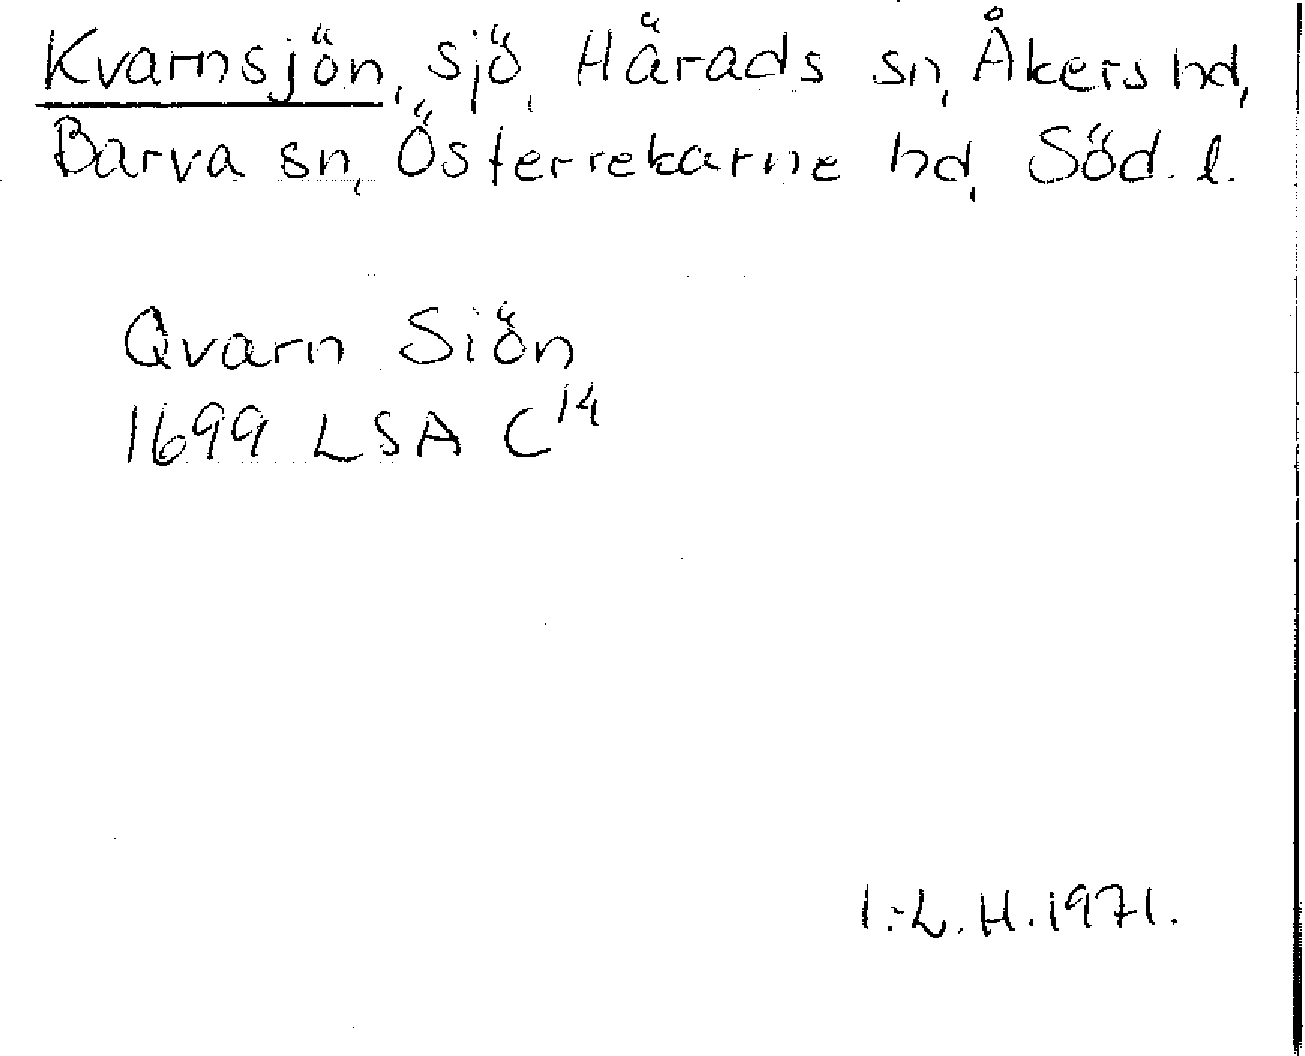 Kvarnsjön, sjö, Härads sn, Åkers hd,
Barva sn, Österrekarne hd, Söd. l.
Qvarn Siön
1699 LSA C14
I.-L. H. 1971.